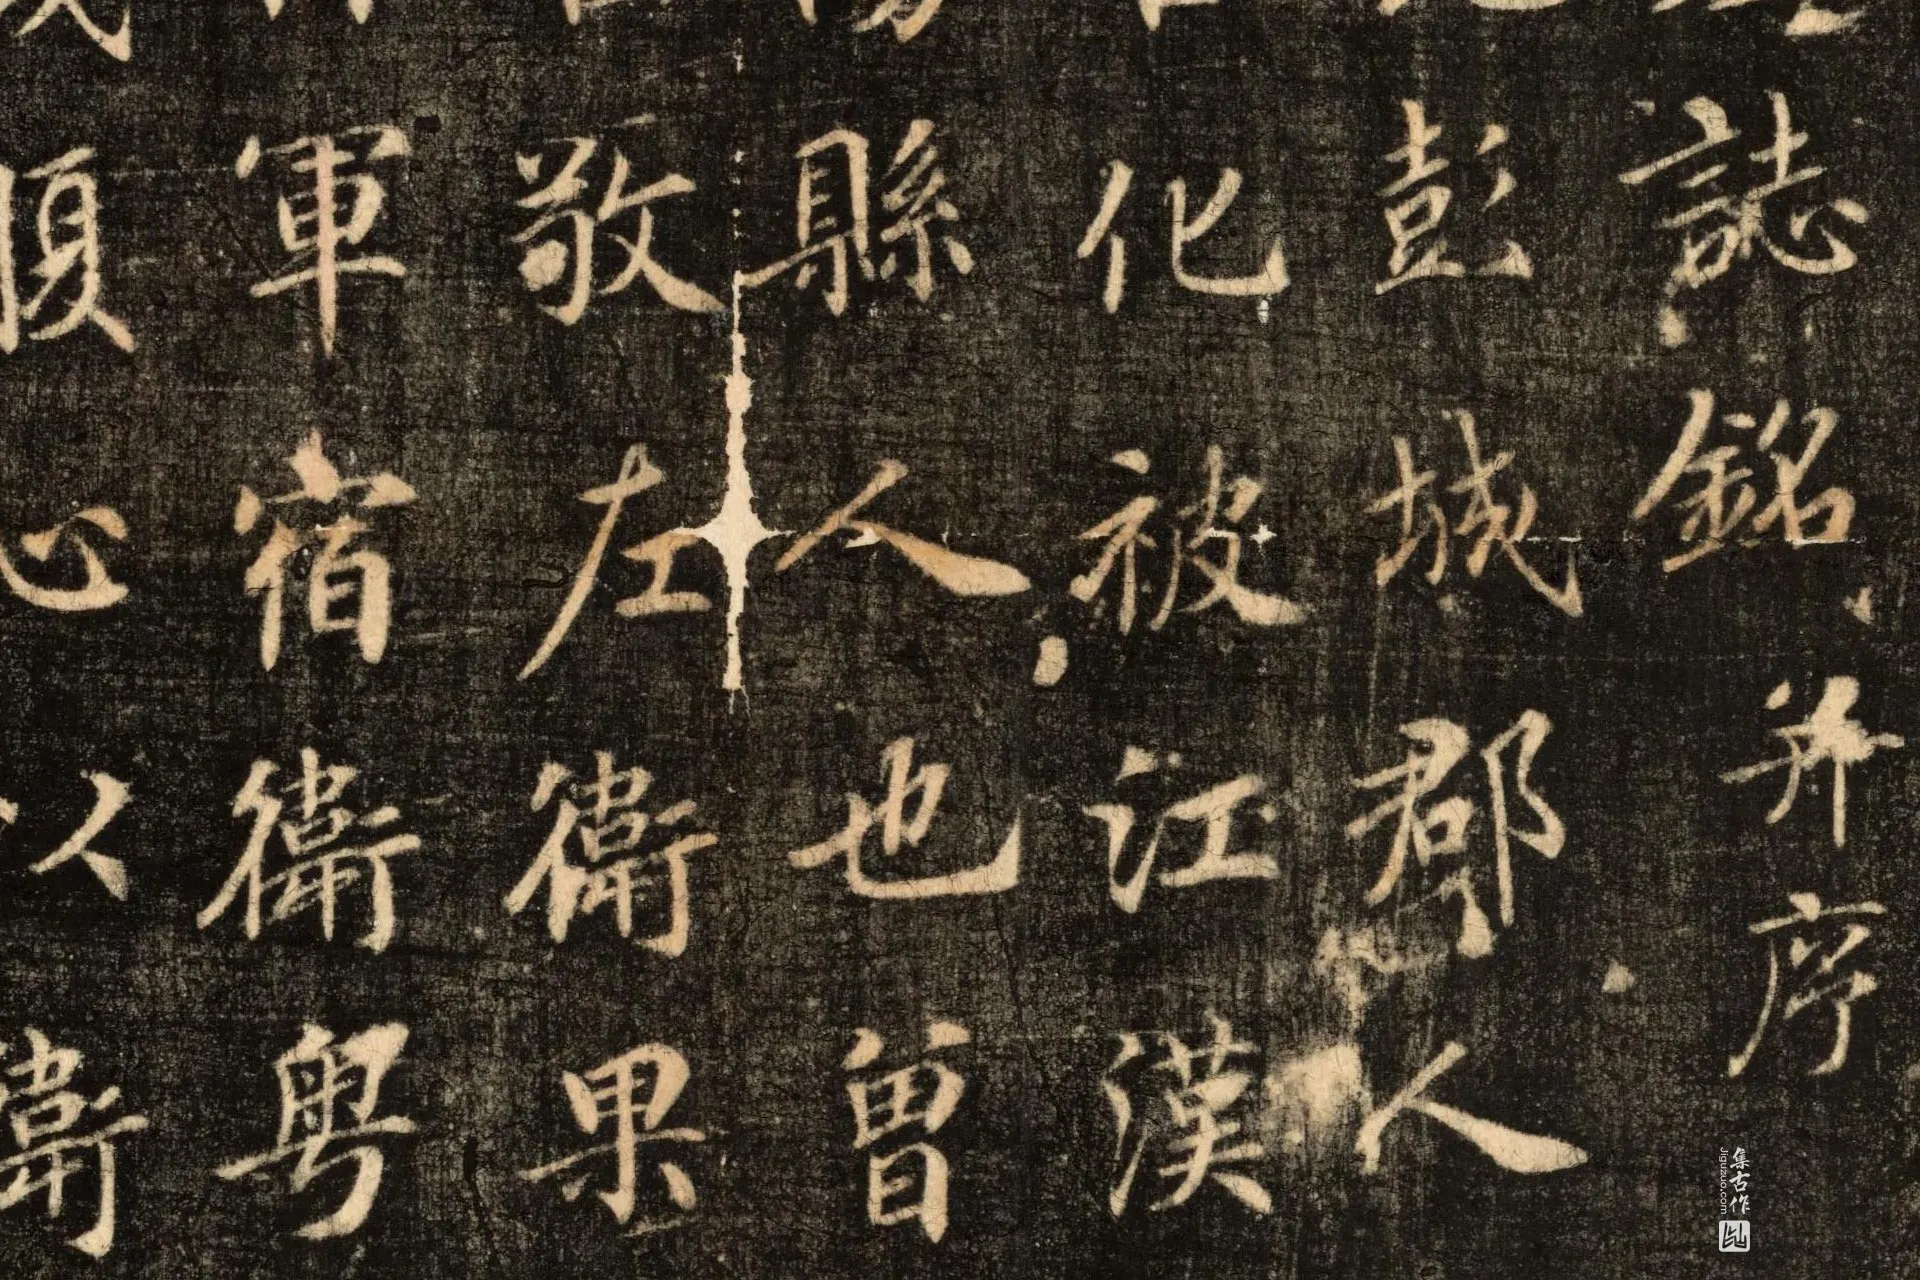 誌銘并序
彭城郡人
化被江漢
縣人也曾
敬左衛果
軍宿衛粵
心以衛
集古作
Jiguzuo.com